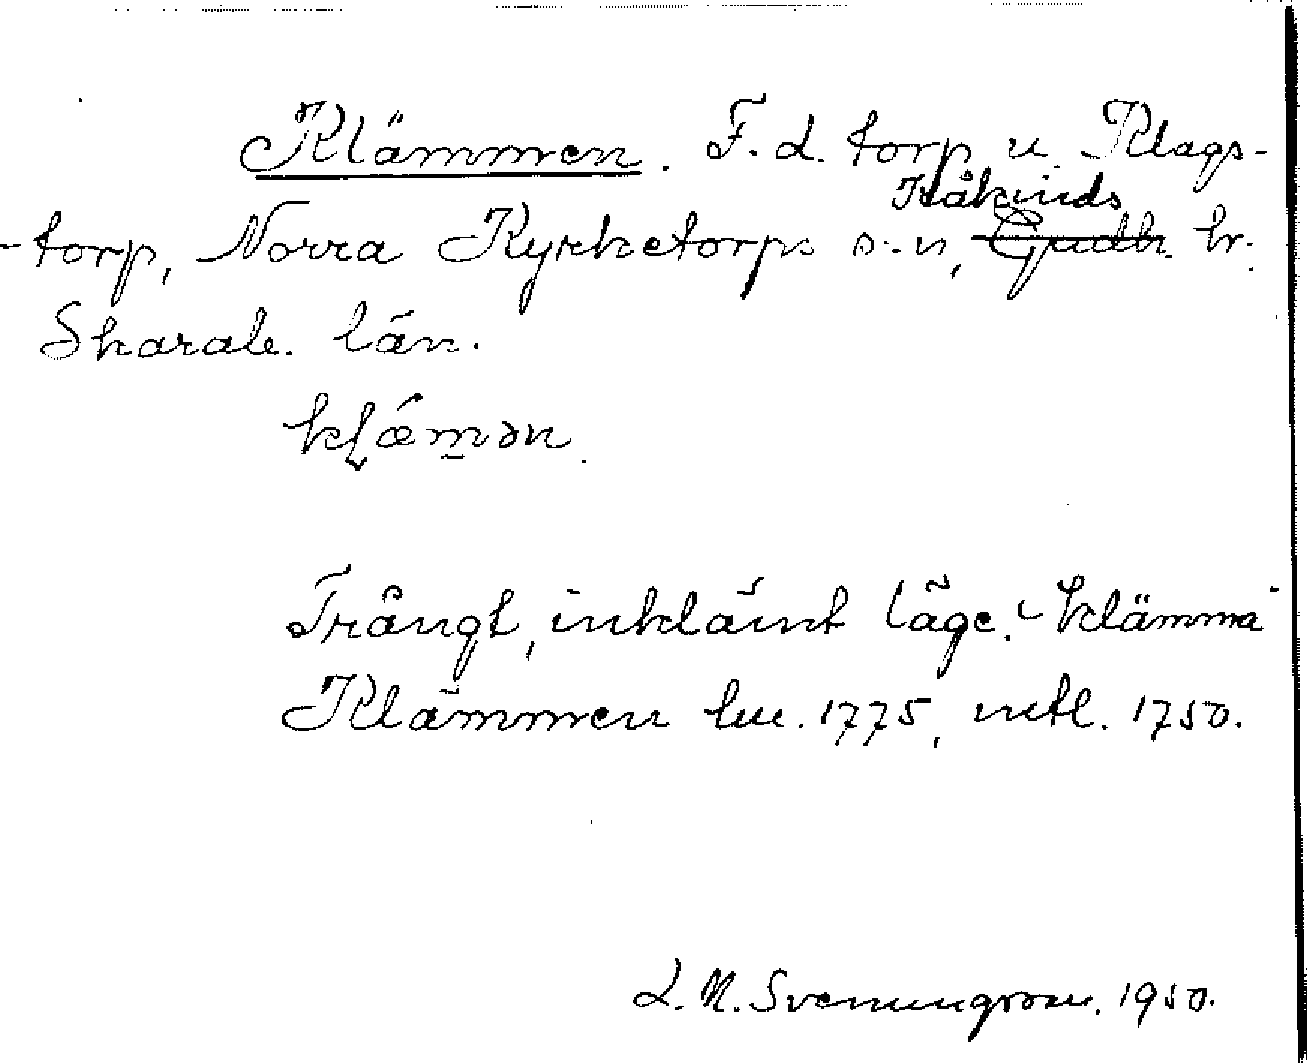 Klämmen. F.d. torp u. Klags-
Kåkinds
-torp, Norra Kyrketorps s:n, Gudh. hr.
Skarab. län.
kl̯ǽm̠ən.
Trångt, inklämt läge. "Klämma"
Klämmen hu. 1775, mtl. 1750.
L. N. Svenungsson. 1950.